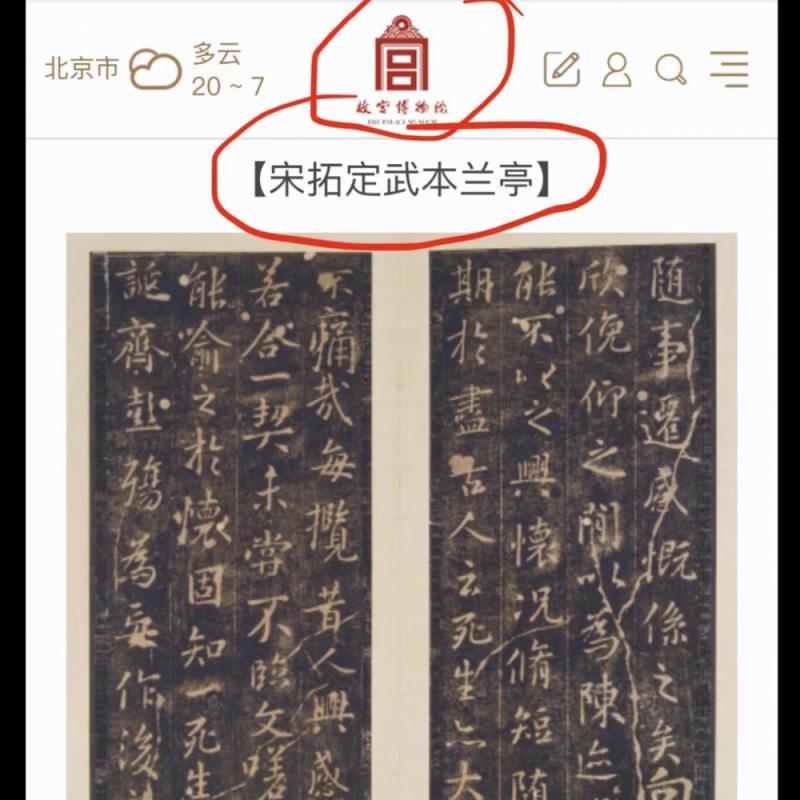 北京市
多云
20 ~ 7
故宫博物院
THE PALACE MUSEUM
【宋拓定武本兰亭】
随事遷感慨係之矣向
欣俛仰之間以為陳迹
能不以之興懷況脩短随
期於盡古人云死生亦大
不痛哉每攬昔人興感
若合一契未嘗不臨文嗟
能喻之於懷固知一死生
誕齊彭殤為妄作後